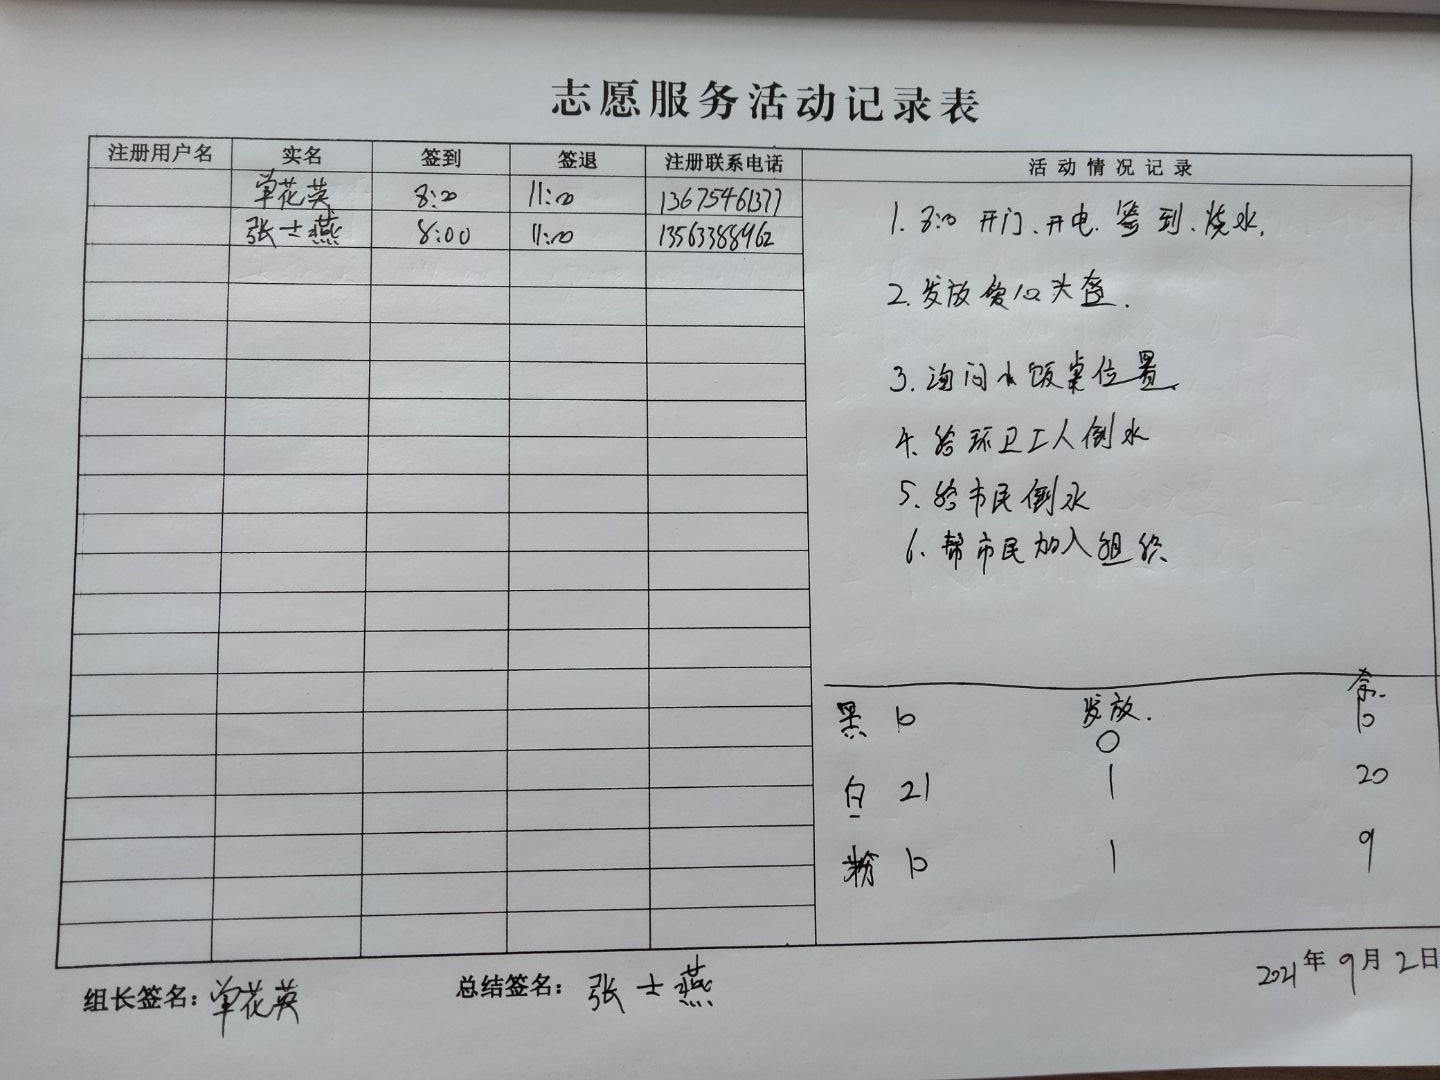 志愿服务活动记录表
注册用户名 实名 签到 签退 注册联系电话 活动情况记录
单花英 8:00 11:00 13675461377
张士燕 8:00 11:00 13563388962
1. 8:00 开门、开电、签到、烧水.
2. 发放
3. 询问 饭桌位置.
4. 给环卫工人倒水
5. 给市民倒水
6. 帮市民加入组织
发放. 余.
黑 10 0 10
白 21 1 20
粉 10 1 9
组长签名：单花英 总结签名：张士燕 2021年9月2日